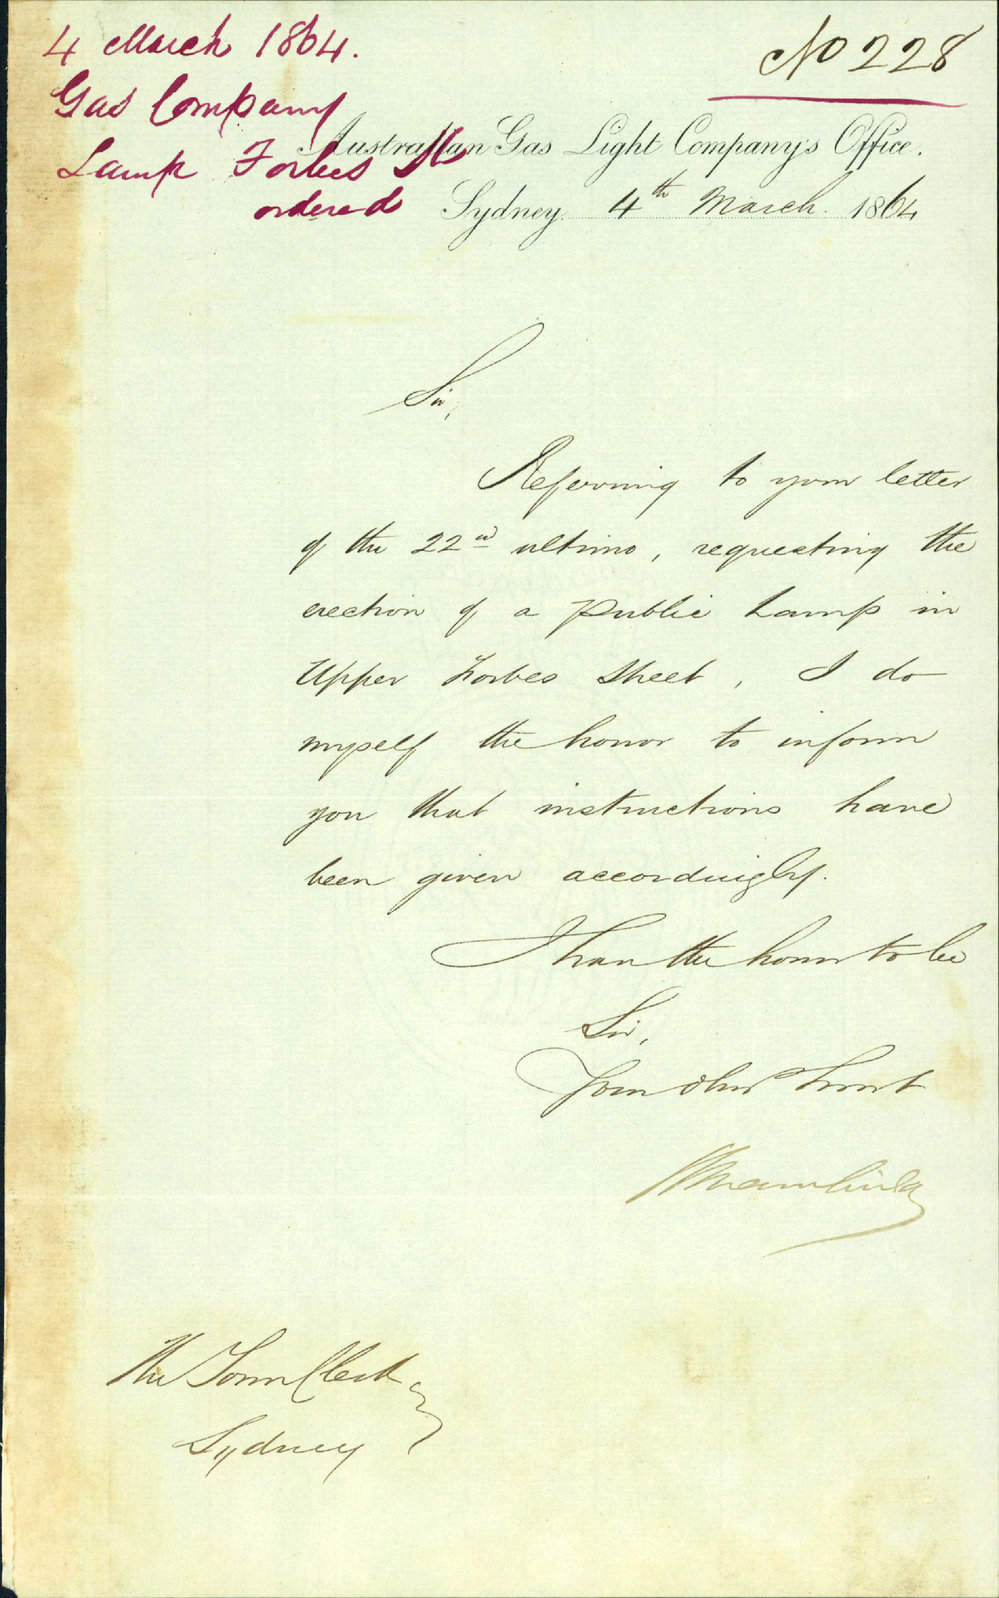 4 March 1864.
Gas Company
Lamp Forbes St
ordered
No 228
Australian Gas Light Company's Office.
Sydney. 4th March. 1864
Sir,
Referring to your letter
of the 22nd ultimo, requesting the
erection of a Public Lamp in
Upper Forbes Street, I do
myself the honor to inform
you that instructions have
been given accordingly.
I have the honor to be
Sir,
Your obt Servt
The Town Clerk
Sydney